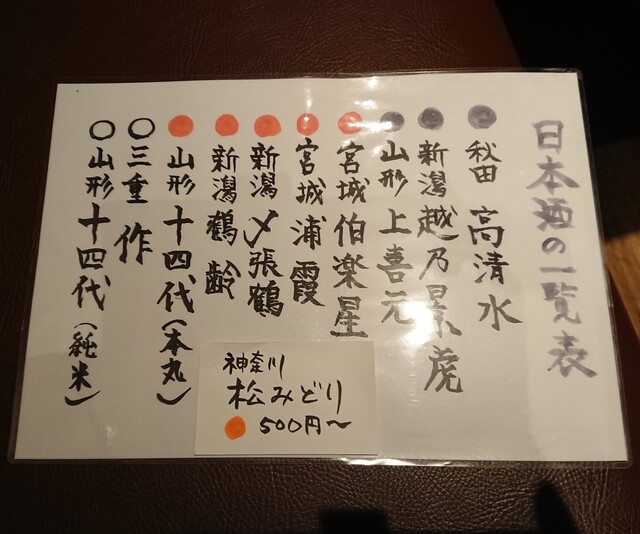 日本酒の一覧表
● 秋田 高清水
● 新潟 越乃景虎
● 山形 上喜元
● 宮城 伯楽星
● 宮城 浦霞
● 新潟 〆張鶴
● 新潟 鶴齢
● 山形 十四代(本丸)
○ 三重 作
○ 山形 十四代(純米)
神奈川
松みどり
● 500円〜